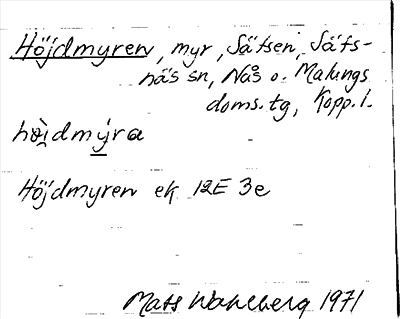 Höjdmyren, myr, Säfsen, Säfs-
näs sn, Nås o. Malungs
doms.tg, Kopp.l.
hö̀idmýra
Höjdmyren ek 12E 3e
Mats Wahlberg 1971